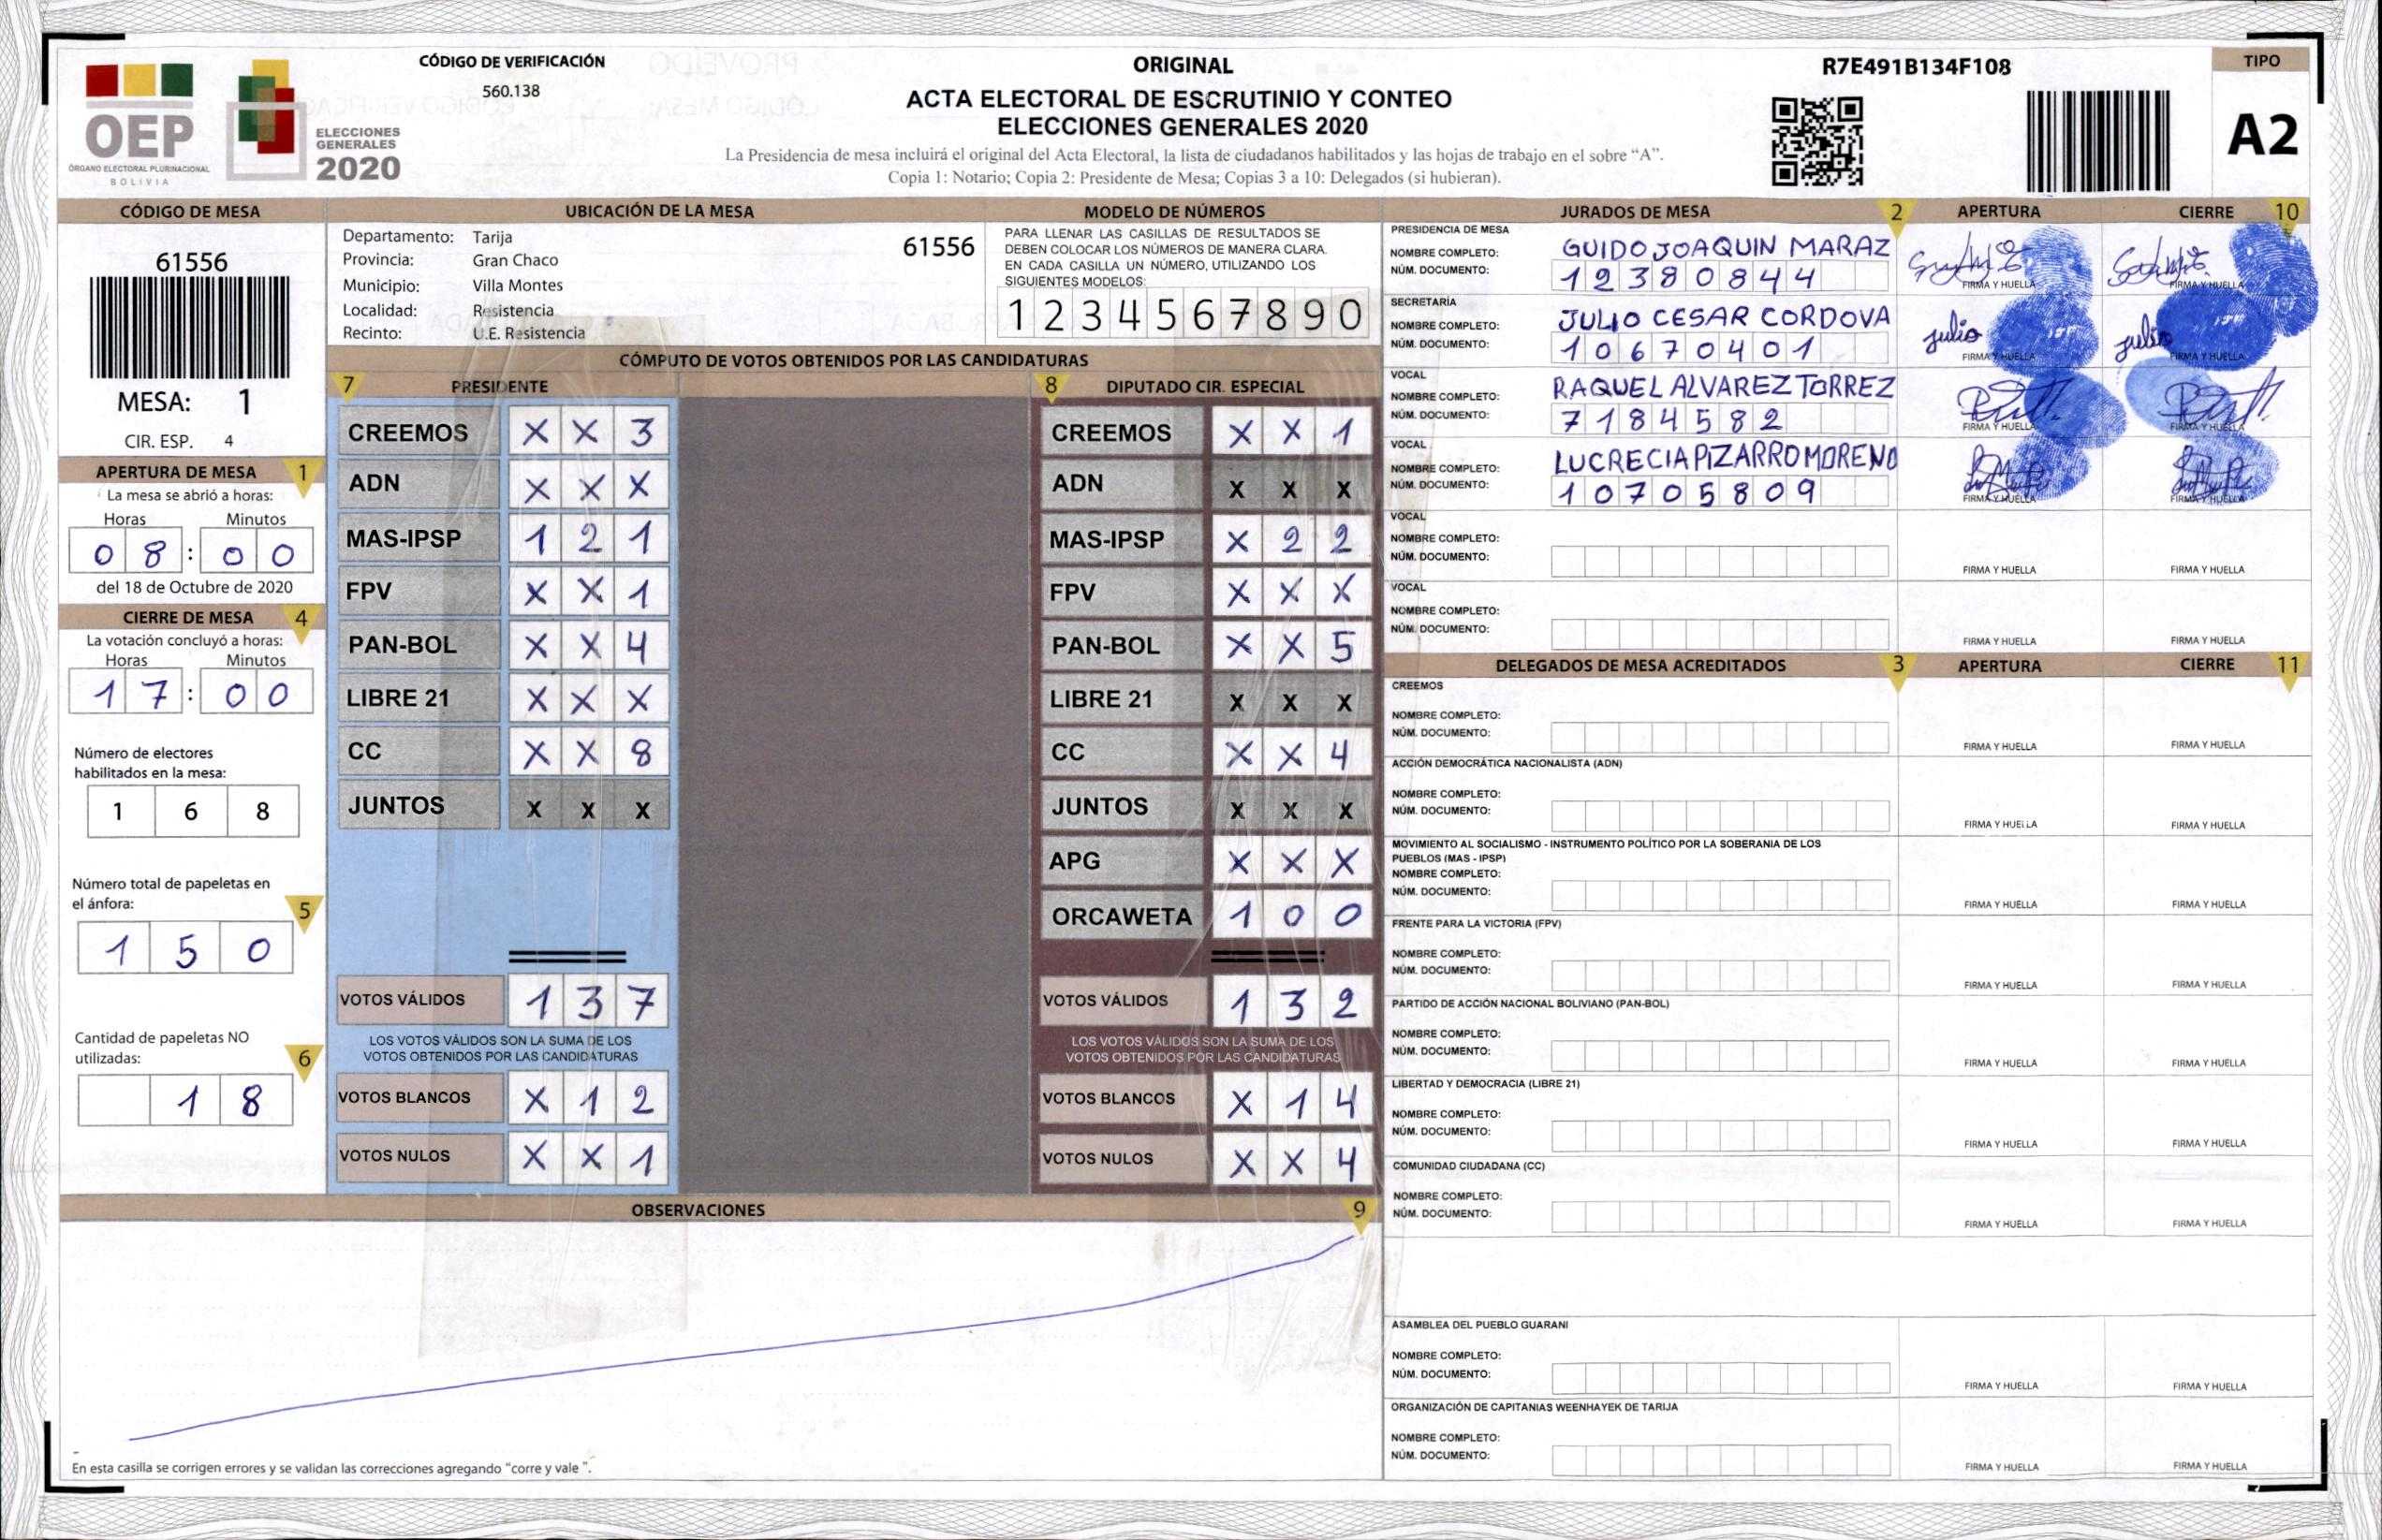 CÓDIGO DE VERIFICACIÓN
560.138
OEP
ÓRGANO ELECTORAL PLURINACIONAL
BOLIVIA
ELECCIONES
GENERALES
2020
ORIGINAL
ACTA ELECTORAL DE ESCRUTINIO Y CONTEO
ELECCIONES GENERALES 2020
La Presidencia de mesa incluirá el original del Acta Electoral, la lista de ciudadanos habilitados y las hojas de trabajo en el sobre “A”.
Copia 1: Notario; Copia 2: Presidente de Mesa; Copias 3 a 10: Delegados (si hubieran).
R7E491B134F108
TIPO
A2
CÓDIGO DE MESA
61556
MESA: 1
CIR. ESP. 4
APERTURA DE MESA 1
La mesa se abrió a horas:
Horas Minutos
0 8 : 0 0
del 18 de Octubre de 2020
CIERRE DE MESA 4
La votación concluyó a horas:
Horas Minutos
1 7 : 0 0
Número de electores
habilitados en la mesa:
1 6 8
Número total de papeletas en
el ánfora: 5
1 5 0
Cantidad de papeletas NO
utilizadas: 6
1 8
UBICACIÓN DE LA MESA
Departamento: Tarija 61556
Provincia: Gran Chaco
Municipio: Villa Montes
Localidad: Resistencia
Recinto: U.E. Resistencia
MODELO DE NÚMEROS
PARA LLENAR LAS CASILLAS DE RESULTADOS SE
DEBEN COLOCAR LOS NÚMEROS DE MANERA CLARA.
EN CADA CASILLA UN NÚMERO, UTILIZANDO LOS
SIGUIENTES MODELOS:
1 2 3 4 5 6 7 8 9 0
CÓMPUTO DE VOTOS OBTENIDOS POR LAS CANDIDATURAS
7 PRESIDENTE
CREEMOS X X 3
ADN X X X
MAS-IPSP 1 2 1
FPV X X 1
PAN-BOL X X 4
LIBRE 21 X X X
CC X X 8
JUNTOS X X X
VOTOS VÁLIDOS 1 3 7
LOS VOTOS VÁLIDOS SON LA SUMA DE LOS
VOTOS OBTENIDOS POR LAS CANDIDATURAS
VOTOS BLANCOS X 1 2
VOTOS NULOS X X 1
8 DIPUTADO CIR. ESPECIAL
CREEMOS X X 1
ADN X X X
MAS-IPSP X 2 2
FPV X X X
PAN-BOL X X 5
LIBRE 21 X X X
CC X X 4
JUNTOS X X X
APG X X X
ORCAWETA 1 0 0
VOTOS VÁLIDOS 1 3 2
LOS VOTOS VÁLIDOS SON LA SUMA DE LOS
VOTOS OBTENIDOS POR LAS CANDIDATURAS
VOTOS BLANCOS X 1 4
VOTOS NULOS X X 4
OBSERVACIONES 9
En esta casilla se corrigen errores y se validan las correcciones agregando “corre y vale ”.
JURADOS DE MESA 2 APERTURA CIERRE 10
PRESIDENCIA DE MESA
NOMBRE COMPLETO: GUIDO JOAQUIN MARAZ
NÚM. DOCUMENTO: 12380844
FIRMA Y HUELLA FIRMA Y HUELLA
SECRETARÍA
NOMBRE COMPLETO: JULIO CESAR CORDOVA
NÚM. DOCUMENTO: 10670401
julio julio
FIRMA Y HUELLA FIRMA Y HUELLA
VOCAL
NOMBRE COMPLETO: RAQUEL ALVAREZ TORREZ
NÚM. DOCUMENTO: 7184582
FIRMA Y HUELLA FIRMA Y HUELLA
VOCAL
NOMBRE COMPLETO: LUCRECIA PIZARRO MORENO
NÚM. DOCUMENTO: 10705809
FIRMA Y HUELLA FIRMA Y HUELLA
VOCAL
NOMBRE COMPLETO:
NÚM. DOCUMENTO:
FIRMA Y HUELLA FIRMA Y HUELLA
VOCAL
NOMBRE COMPLETO:
NÚM. DOCUMENTO:
FIRMA Y HUELLA FIRMA Y HUELLA
DELEGADOS DE MESA ACREDITADOS 3 APERTURA CIERRE 11
CREEMOS
NOMBRE COMPLETO:
NÚM. DOCUMENTO:
FIRMA Y HUELLA FIRMA Y HUELLA
ACCIÓN DEMOCRÁTICA NACIONALISTA (ADN)
NOMBRE COMPLETO:
NÚM. DOCUMENTO:
FIRMA Y HUELLA FIRMA Y HUELLA
MOVIMIENTO AL SOCIALISMO - INSTRUMENTO POLÍTICO POR LA SOBERANIA DE LOS
PUEBLOS (MAS - IPSP)
NOMBRE COMPLETO:
NÚM. DOCUMENTO:
FIRMA Y HUELLA FIRMA Y HUELLA
FRENTE PARA LA VICTORIA (FPV)
NOMBRE COMPLETO:
NÚM. DOCUMENTO:
FIRMA Y HUELLA FIRMA Y HUELLA
PARTIDO DE ACCIÓN NACIONAL BOLIVIANO (PAN-BOL)
NOMBRE COMPLETO:
NÚM. DOCUMENTO:
FIRMA Y HUELLA FIRMA Y HUELLA
LIBERTAD Y DEMOCRACIA (LIBRE 21)
NOMBRE COMPLETO:
NÚM. DOCUMENTO:
FIRMA Y HUELLA FIRMA Y HUELLA
COMUNIDAD CIUDADANA (CC)
NOMBRE COMPLETO:
NÚM. DOCUMENTO:
FIRMA Y HUELLA FIRMA Y HUELLA
ASAMBLEA DEL PUEBLO GUARANI
NOMBRE COMPLETO:
NÚM. DOCUMENTO:
FIRMA Y HUELLA FIRMA Y HUELLA
ORGANIZACIÓN DE CAPITANIAS WEENHAYEK DE TARIJA
NOMBRE COMPLETO:
NÚM. DOCUMENTO:
FIRMA Y HUELLA FIRMA Y HUELLA